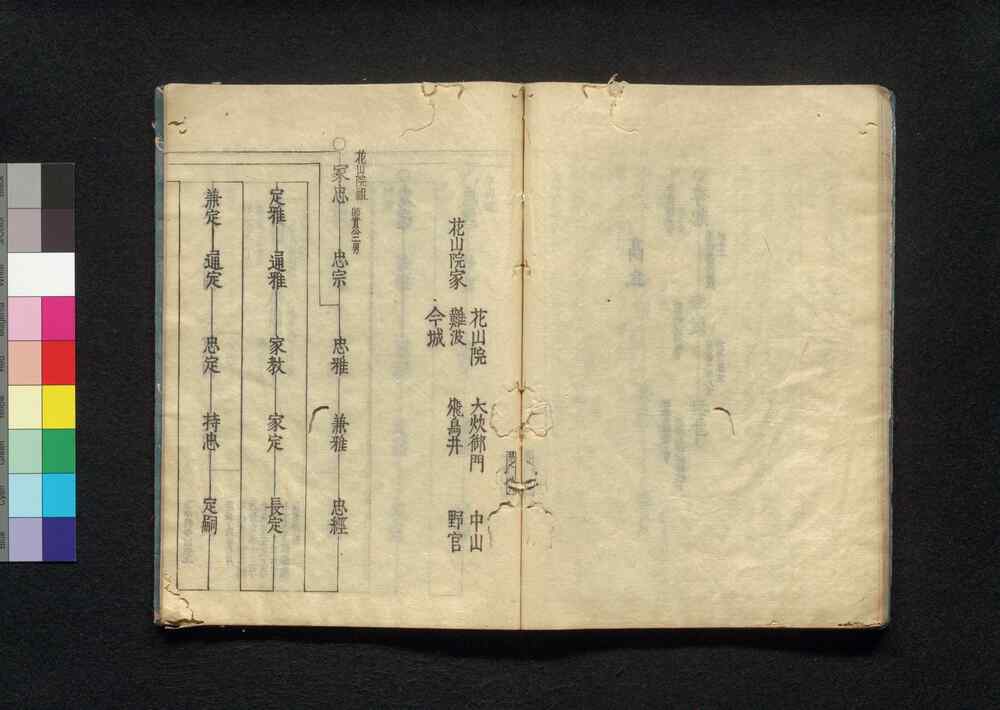 花山院家
花山院 大炊御門 中山
難波 飛鳥井 野宮
今城
花山院祖 師實公三男
家忠 忠宗 忠雅 兼雅 忠經
定雅 通雅 家教 家定 長定
兼定 通定 忠定 持忠 定嗣